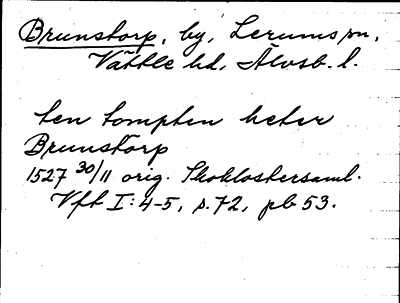 Brunstorp, by, Lerums sn,
Vättle hd, Älvsb. l.
ten tompten heter
Brunstorp
1527 30/11 orig. Skoklostersaml.
Vft I: 4-5, s. 72, pb 53.